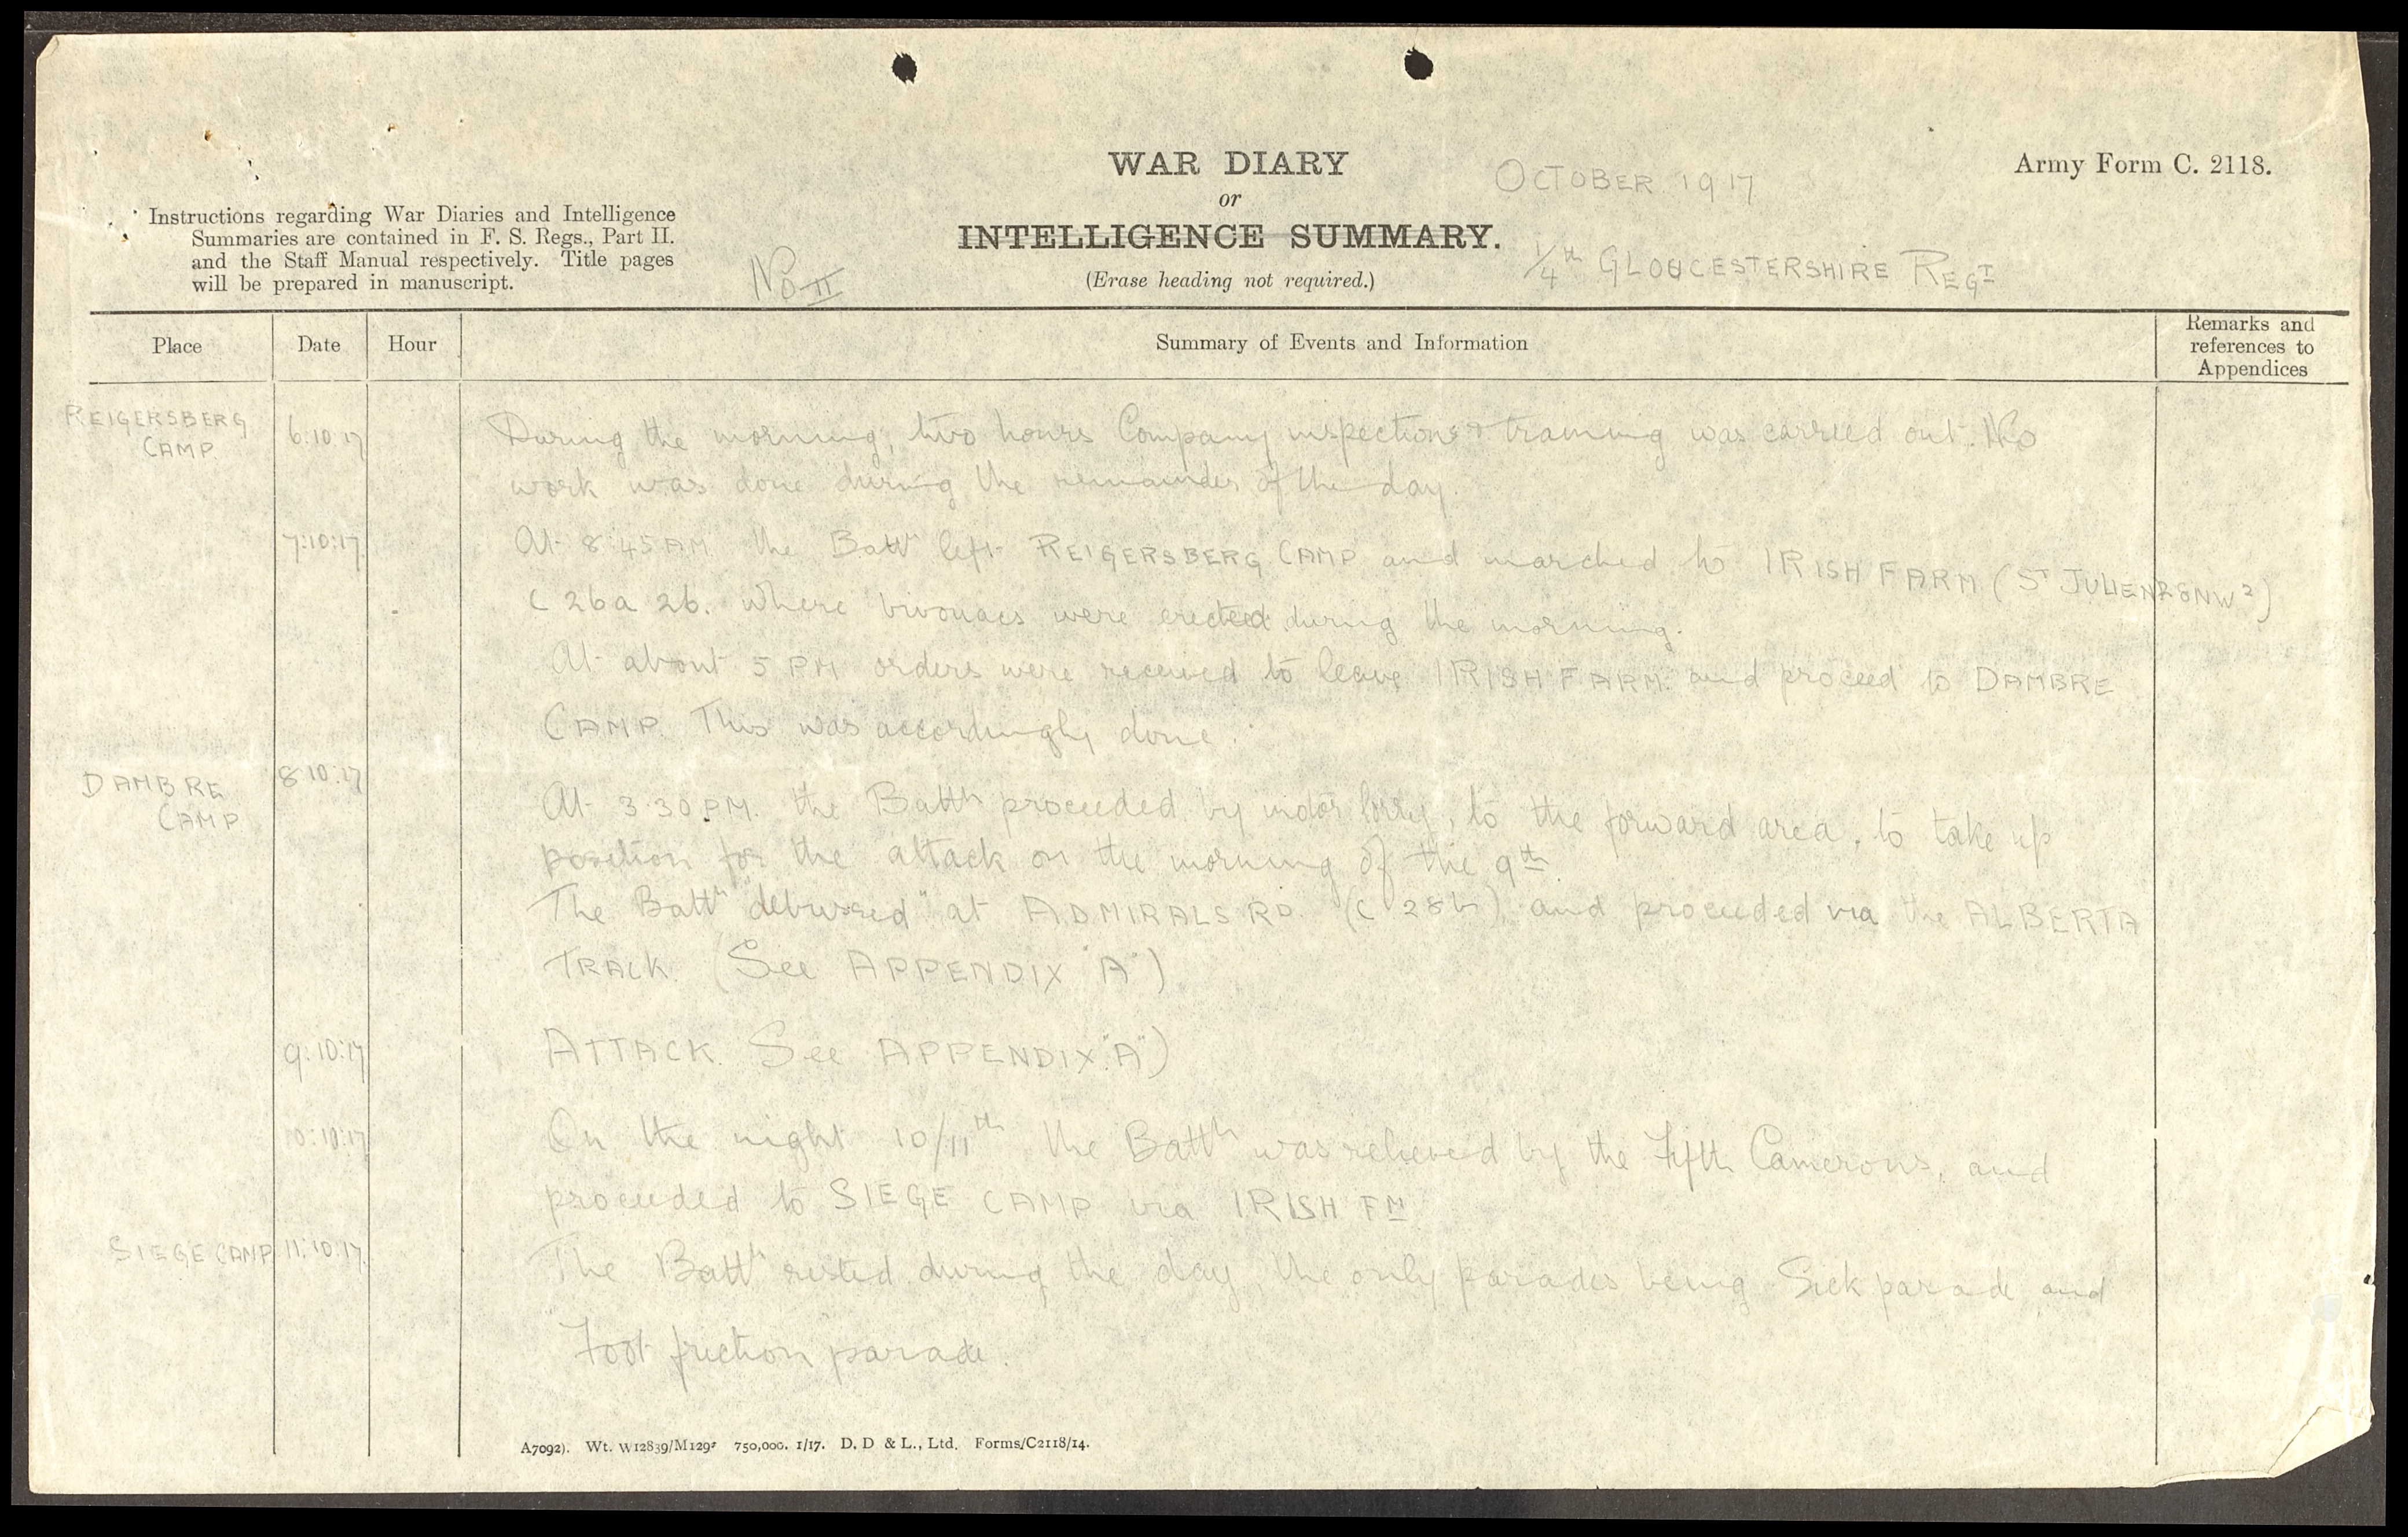 WAR DIARY
or
INTELLIGENCE SUMMARY.
(Erase heading not required.)
OCTOBER 1917
1/4th GLOUCESTERSHIRE REGT
Army Form C. 2118.
Instructions regarding War Diaries and Intelligence
Summaries are contained in F. S. Regs., Part II.
and the Staff Manual respectively. Title pages
will be prepared in manuscript.
No II
Place Date Hour Summary of Events and Information Remarks and references to Appendices
REIGERSBERG CAMP 6.10.17 During the morning, two hours Company inspections & training was carried out. No
work was done during the remainder of the day.
7:10:17 At 8:45 AM. the Battn left REIGERSBERG CAMP and marched to IRISH FARM (ST JULIEN 28NW2)
C 26a 26. where bivouacs were erected during the morning.
At about 5 PM orders were received to leave IRISH FARM. and proceed to DAMBRE
CAMP. This was accordingly done.
DAMBRE CAMP 8:10:17 At 3.30 P.M. the Battn proceeded by motor lorry, to the forward area, to take up
position for the attack on the morning of the 9th.
The Battn "debussed" at ADMIRALS RD. (C 28b) and proceeded via the ALBERTA
TRACK. (See APPENDIX "A")
9:10:17 ATTACK. See APPENDIX "A")
0:10:17 On the night 10/11th the Battn was relieved by the Fifth Camerons, and
proceeded to SIEGE CAMP via IRISH FM
SIEGE CAMP 11:10:17 The Battn rested during the day, the only parades being Sick parade and
Foot friction parade.
A7092). Wt. W12839/M129 750,000. 1/17. D. D & L., Ltd. Forms/C2118/14.